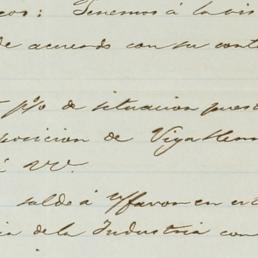 cos: Tenemos á la vis
de acuerdo con su cont
p%o de situacion pues
posicion de Viya Hern
á VV.
saldo á s/favor en est
ia de la Industria con